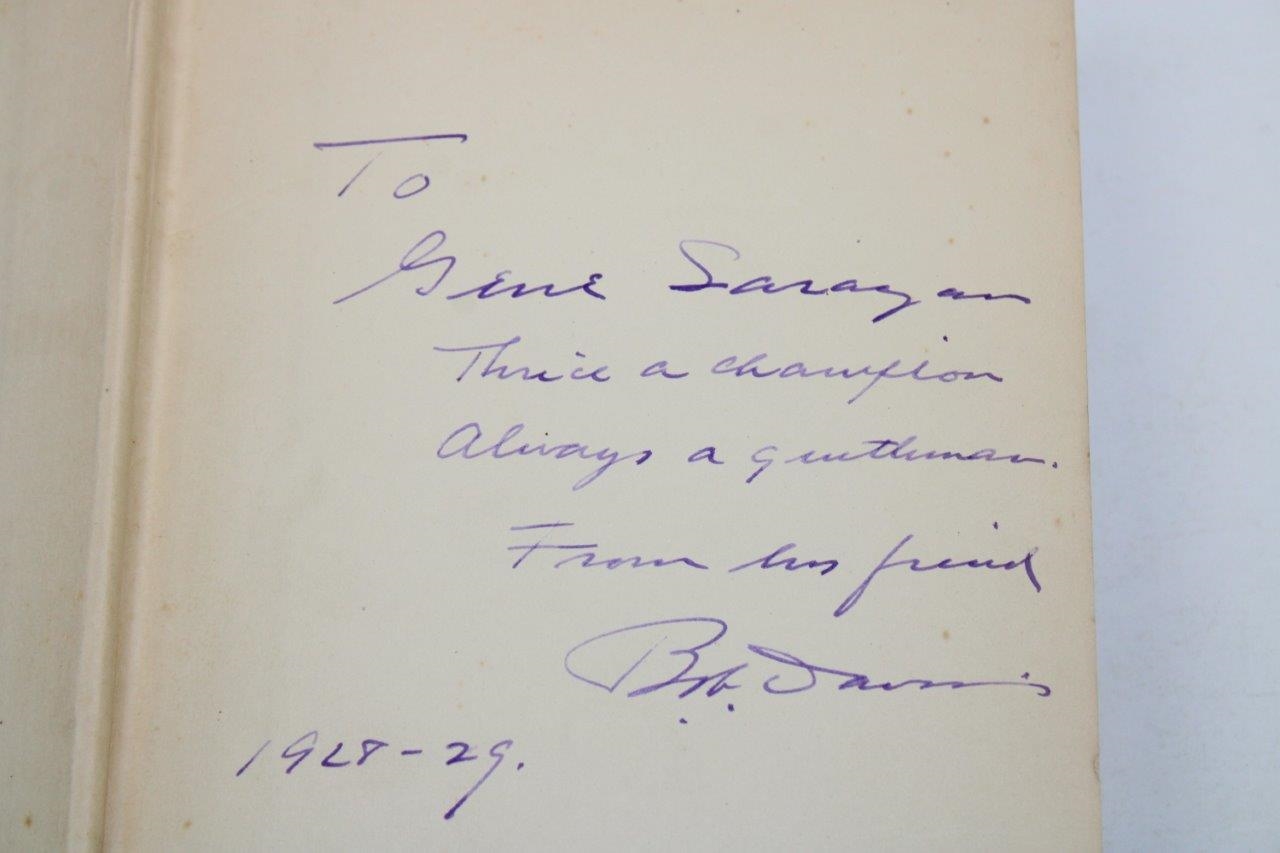 To
Gene Sarazan
Thrice a champion
Always a gentleman.
From his friend
Bob. Davis
1928-29.